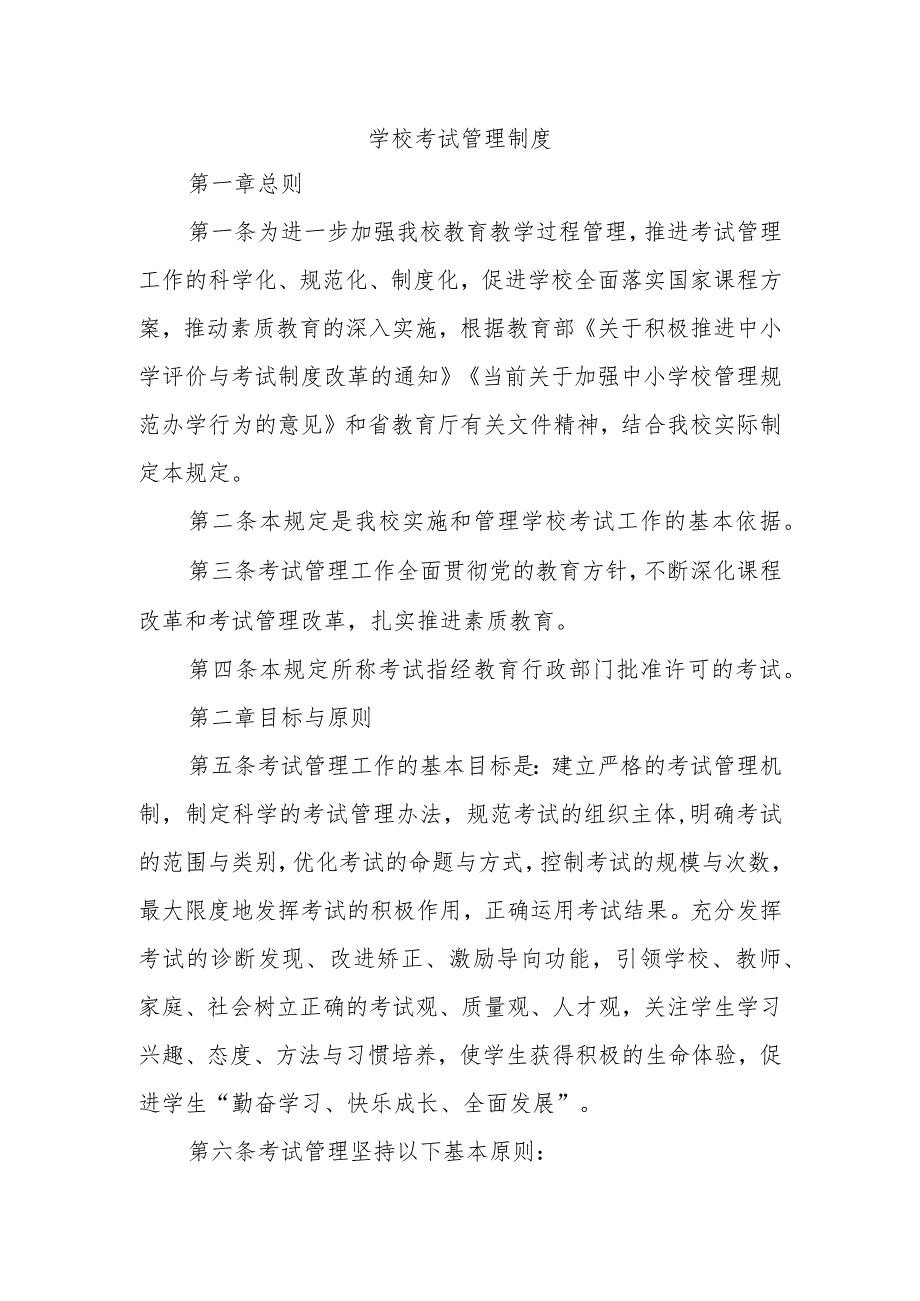 学校考试管理制度
第一章总则
第一条为进一步加强我校教育教学过程管理，推进考试管理
工作的科学化、规范化、制度化，促进学校全面落实国家课程方
案，推动素质教育的深入实施，根据教育部《关于积极推进中小
学评价与考试制度改革的通知》《当前关于加强中小学校管理规
范办学行为的意见》和省教育厅有关文件精神，结合我校实际制
定本规定。
第二条本规定是我校实施和管理学校考试工作的基本依据。
第三条考试管理工作全面贯彻党的教育方针，不断深化课程
改革和考试管理改革，扎实推进素质教育。
第四条本规定所称考试指经教育行政部门批准许可的考试。
第二章目标与原则
第五条考试管理工作的基本目标是：建立严格的考试管理机
制，制定科学的考试管理办法，规范考试的组织主体,明确考试
的范围与类别,优化考试的命题与方式,控制考试的规模与次数，
最大限度地发挥考试的积极作用，正确运用考试结果。充分发挥
考试的诊断发现、改进矫正、激励导向功能，引领学校、教师、
家庭、社会树立正确的考试观、质量观、人才观，关注学生学习
兴趣、态度、方法与习惯培养，使学生获得积极的生命体验，促
进学生“勤奋学习、快乐成长、全面发展”。
第六条考试管理坚持以下基本原则：